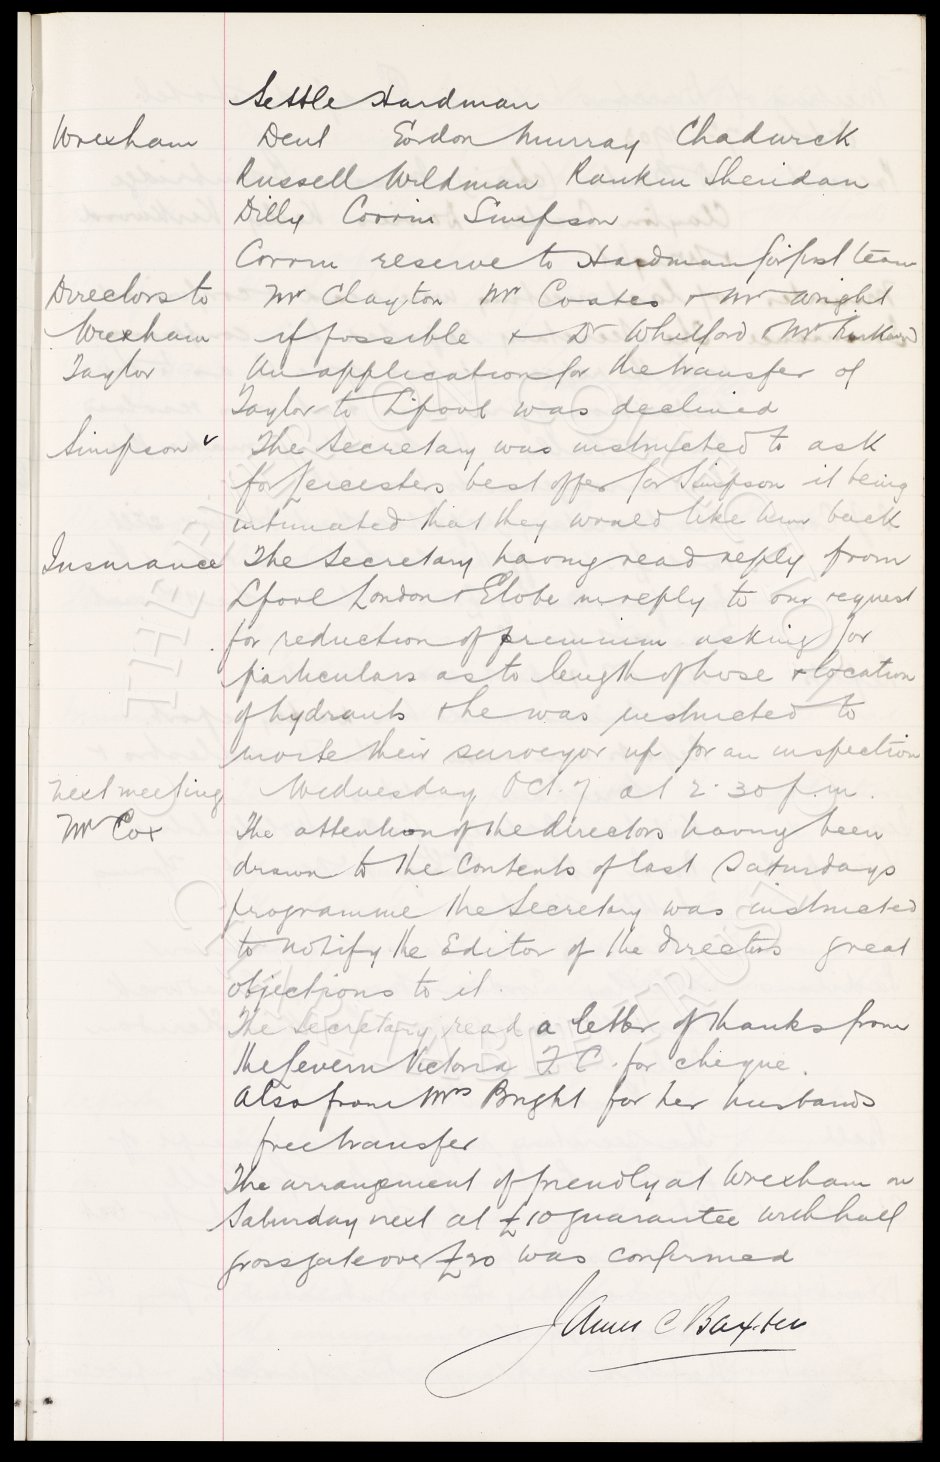 Settle Hardman
Wrexham Dent Gordon Murray Chadwick
Russell Wildman Rankin Sheridan
Dilly Corrin Simpson
Corrin reserve to Hardman for first team
Directors to Mr Clayton Mr Coates & Mr Wright
Wrexham if possible & Dr Whitford & Mr Kirkwood
Taylor An application for the transfer of
Taylor to Lpool was declined
Simpson The Secretary was instructed to ask
for Leicesters best offer for Simpson it being
intimated that they would like him back
Insurance The Secretary having read reply from
Lpool London & Globe in reply to our request
for reduction of premium asking for
particulars as to length of hose & location
of hydrants & he was instructed to
invite their surveyor up for an inspection
next meeting Wednesday Oct. 7 at 2.30 p.m.
Mr Cox The attention of the directors having been
drawn to the contents of last Saturdays
programme the Secretary was instructed
to notify the Editor of the directors great
objections to it.
The Secretary read a letter of thanks from
the Severn Victoria F.C. for cheque.
Also from Mrs Bright for her husbands
free transfer
The arrangement of friendly at Wrexham on
Saturday next at £10 guarantee with half
gross gate over £20 was confirmed
James C Baxter